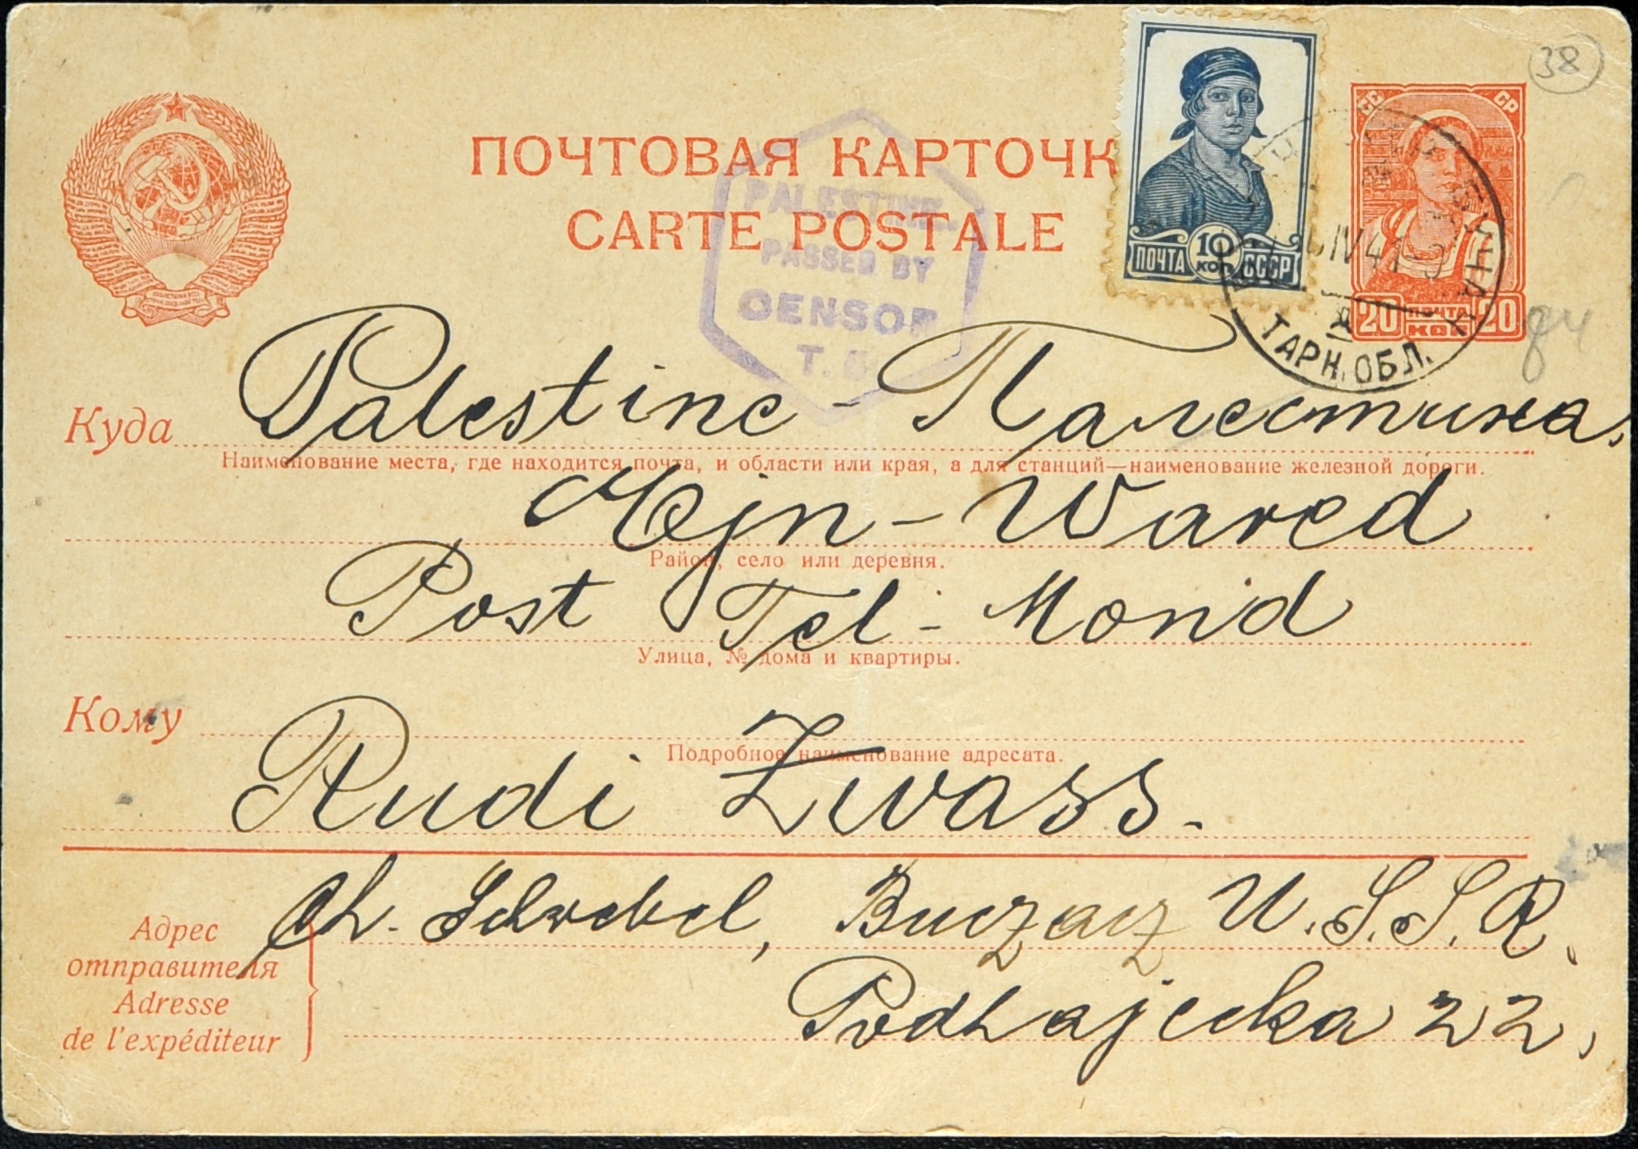 38
ПОЧТОВАЯ КАРТОЧК
CARTE POSTALE
PALESTINE
PASSED BY
CENSOR
T.
ПОЧТА 10 КОП СССР
СС СР
20 ПОЧТА КОП 20
IV 41
ТАРН. ОБЛ.
Куда Palestine - Палестина.
Наименование места, где находится почта, и области или края, а для станций—наименование железной дороги.
Ejn - Wared
Район, село или деревня.
Post Tel - Mond
Улица, № дома и квартиры.
Кому
Подробное наименование адресата.
Rudi Zwass.
Ch. Schrebel, Buczacz U.S.S.R.
Адрес
отправителя
Adresse
de l'expéditeur
Podhajecka 22,